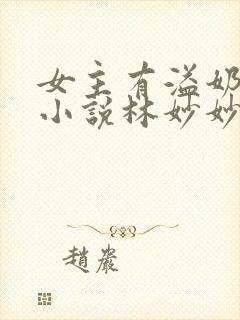 女主有溢奶
小說林妙妙
趙巖